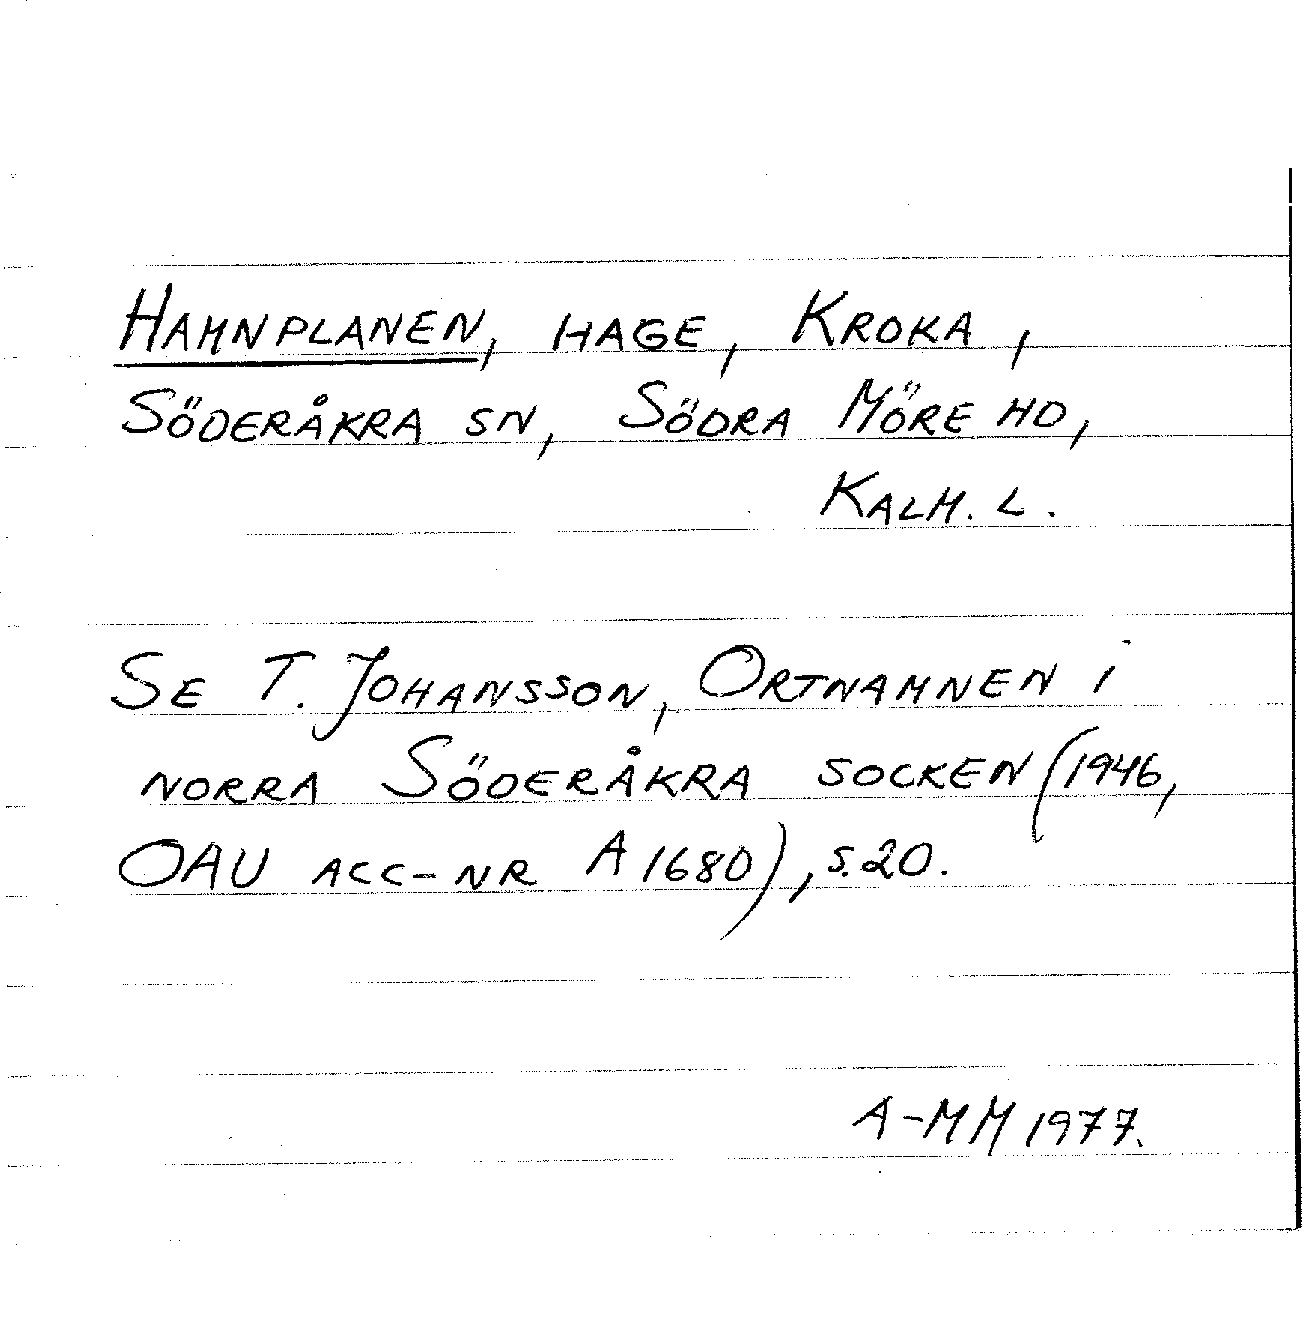 HAMNPLANEN, HAGE, KROKA,
SÖDERÅKRA SN, SÖDRA MÖRE HD,
KALM. L.
SE T. JOHANSSON, ORTNAMNEN I
NORRA SÖDERÅKRA SOCKEN (1946,
OAU ACC-NR A 1680), S.20.
A-MM 1977.